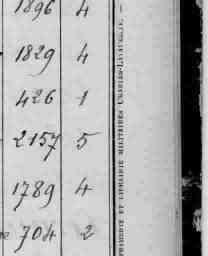 1896 4
1829 4
426 1
2157 5
1789 4
704 2
PRIMERIE ET LIBRAIRIE MILITAIRES CHARLES-LAVAUZELLE. —